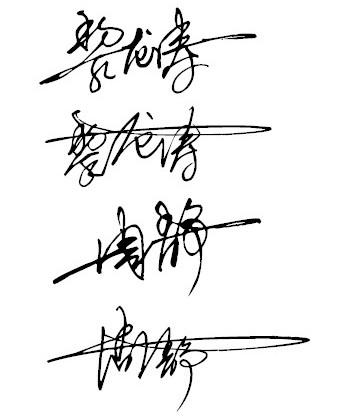 黎龙涛
黎龙涛
周静
周静